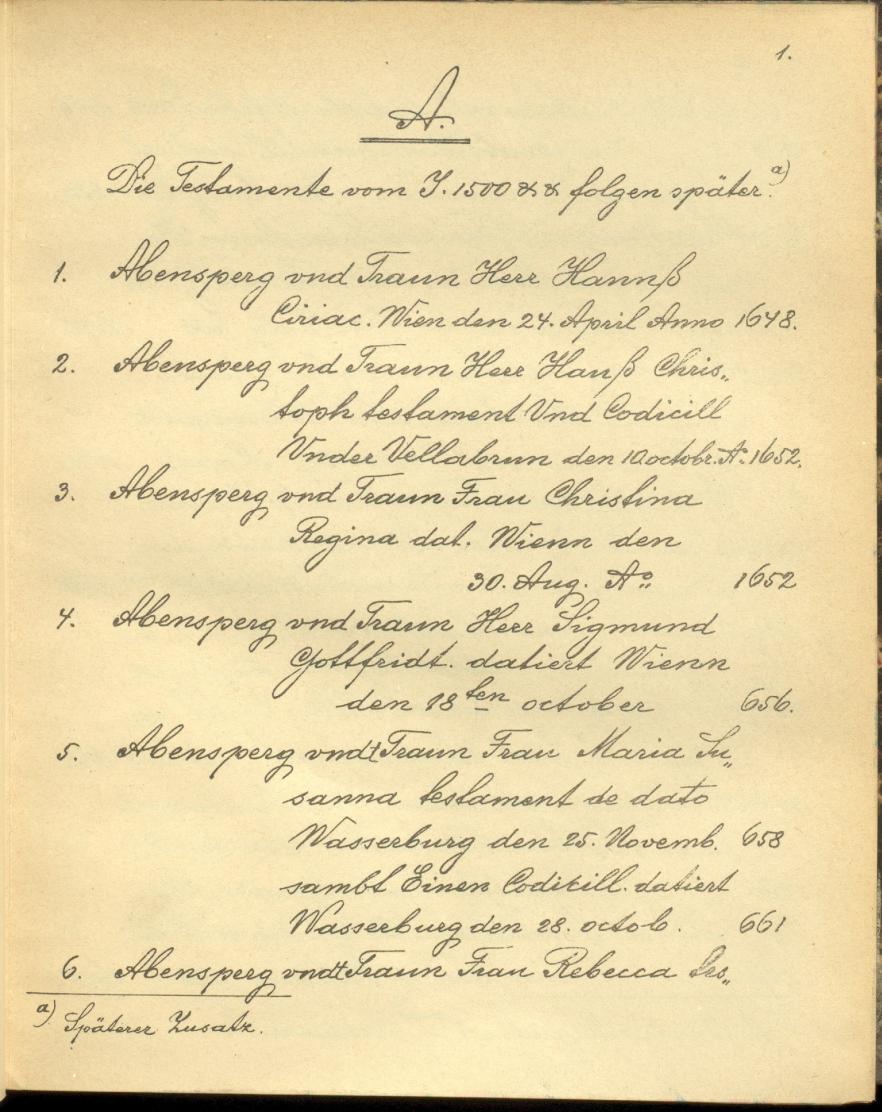 1.
A.
Die Testamente vom J. 1500 & & folgen später. a)
1. Abensperg vnd Traun Herr Hannß
Ciriac. Wien den 24. April Anno 1648.
2. Abensperg vnd Traun Herr Hanß Chris„
toph testament Vnd Codicill
Vnder Vellabrun den 10 octobr. Aº. 1652.
3. Abensperg vnd Traun Frau Christina
Regina dat. Wienn den
30. Aug. Aº„ 1652
4. Abensperg vnd Traun Herr Sigmund
Gottfridt. datiert Wienn
den 18ten october 656.
5. Abensperg vndt Traun Frau Maria Su„
sanna testament de dato
Wasserburg den 25. Novemb. 658
sambt Einen Codicill. datiert
Wasserburg den 28. octob. 661
6. Abensperg vndt Traun Frau Rebecca
a) Späterer Zusatz.